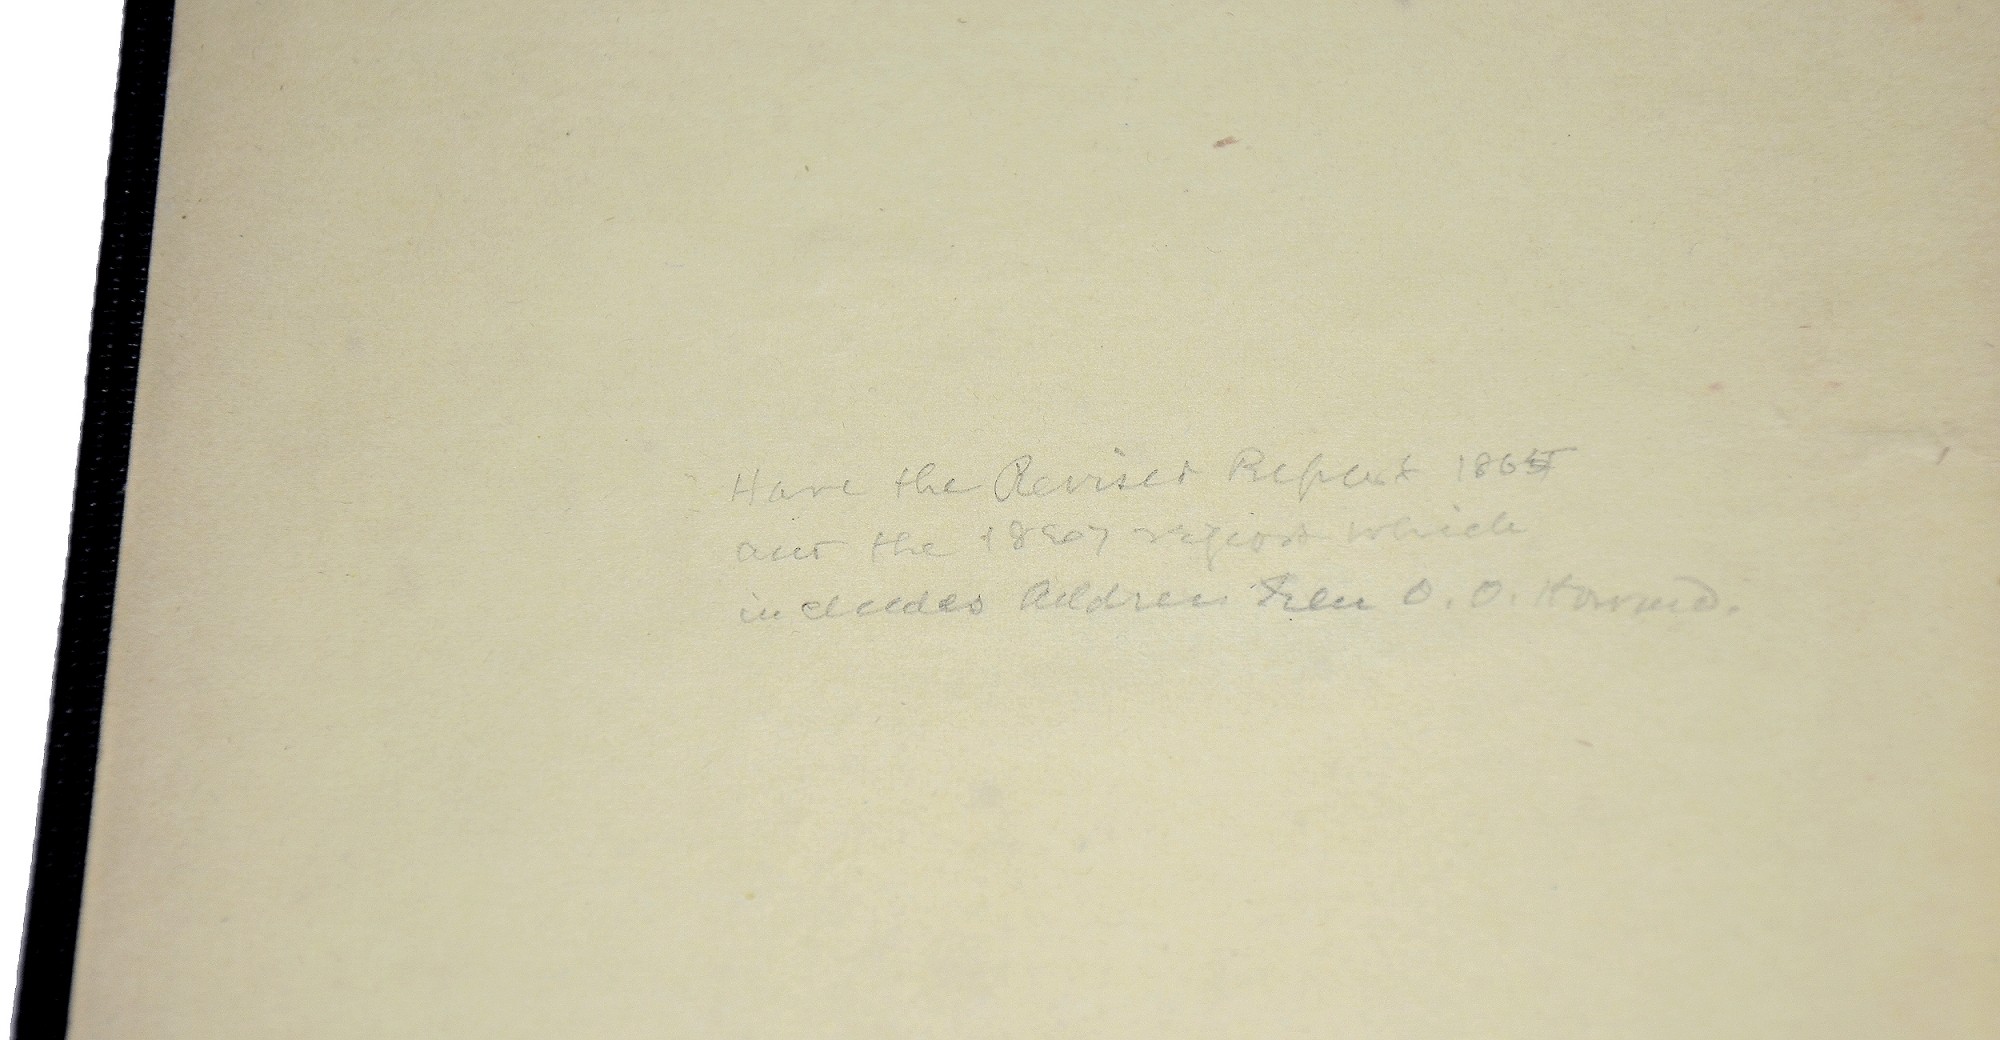 Have the Revised Report 1865
and the 1867 report which
includes Address Gen O. O. Howard.